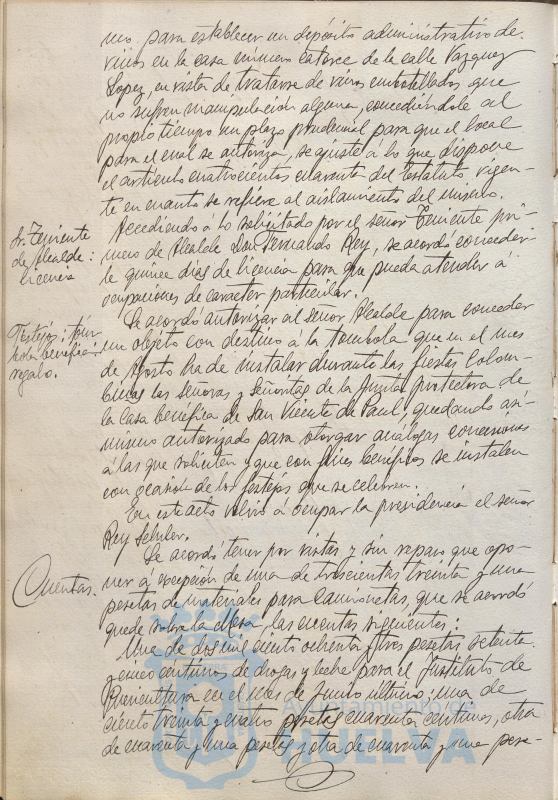 mo para establecer un depósito administrativo de
vinos en la casa número catorce de la calle Vazquez
Lopez, en vista de tratarse de vinos embotellados que
no sufren manipulación alguna, concediéndole al
propio tiempo un plazo prudencial para que el local
para el cual se autoriza, se ajuste á lo que dispone
el artículo cuatrocientos cuarenta del Estatuto vigen-
te en cuanto se refiere al aislamiento del mismo.
Sr. Teniente
de Alcalde:
licencia
Accediendo á lo solicitado por el señor Teniente pri-
mero de Alcalde Don Fernando Rey, se acordó conceder-
le quince dias de licencia para que pueda atender á
ocupaciones de caracter particular.
Festejos: tóm-
bola benéfica:
regalo.
Se acordó autorizar al señor Alcalde para conceder
un objeto con destino á la tombola que en el mes
de Agosto ha de instalar durante las fiestas Colom-
binas las señoras y señoritas de la Junta protectora de
la Casa benéfica de San Vicente de Paul, quedando así-
mismo autorizado para otorgar análogas concesiones
á las que soliciten y que con fines benéficos se instalen
con ocasión de los festejos que se celebren.
En este acto volvió á ocupar la presidencia el señor
Rey
Cuentas.
Se acordó tener por vistas y sin reparo que opo-
ner á excepción de una de trescientas treinta y una
pesetas de materiales para camionetas, que se acordó
quede sobre la Mesa las cuentas siguientes:
Una de dos mil ciento ochenta y tres pesetas setenta
y cinco centimos de drogas y leche para el Instituto de
Puericultura en el mes de Junio último; una de
ciento treinta y cuatro pesetas cuarenta centimos, otra
de cuarenta y una pesetas y otra de cuarenta y una pese-
Ayuntamiento de
HUELVA